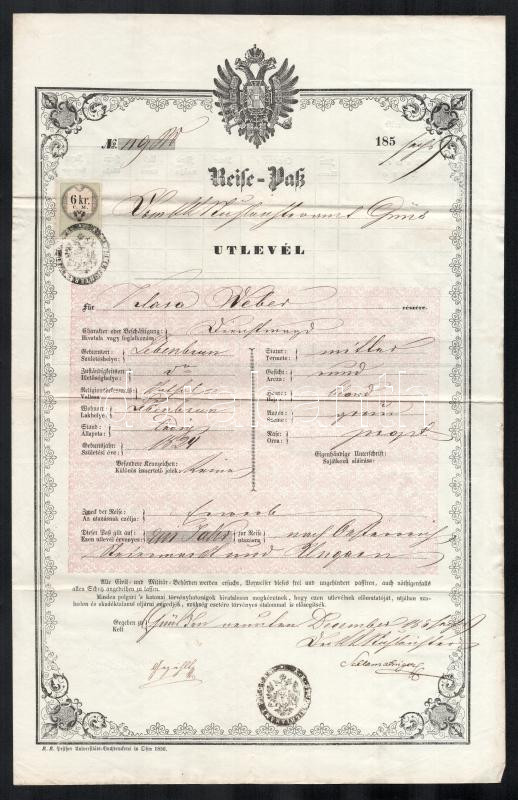 № 119
185
Reise-Paß
6 kr.
C. M.
Güns
UTLEVÉL
Für Klara Weber részére.
Charakter oder Beschäftigung: Dienstmagd
Hivatala vagy foglalkozása:
Geburtsort: Lebenbrun
Születéshelye:
Zuständigkeitsort:
Illetőséghelye:
Religionsbekenntniß:
Vallása:
Wohnort:
Lakhelye:
Stand: ledig
Állapota:
Geburtsjahr: 1824
Születési éve:
Besondere Kennzeichen: Keine
Különös ismertető jelek:
Statur: mittel
Termete:
Gesicht: rund
Arcza:
Haare: blond
Haja:
Augen: grau
Szeme:
Nase: propt
Orra:
Eigenhändige Unterschrift:
Sajátkezű aláírása:
Zweck der Reise: Erwerb
Az utazásnak czélja:
Dieser Paß gilt auf: Ein Jahr zur Reise nach Oesterreich
Ezen utlevél érvényes: utazásra
Steiermark und Ungarn
Alle Civil- und Militär-Behörden werden ersucht, Vorweiser dieses frei und ungehindert passiren, auch nöthigenfalls
allen Schutz angedeihen zu lassen.
Minden polgári 's katonai törvényhatóságok hivatalosan megkéretnek, hogy ezen utlevélnek előmutatóját, utjában szabadon
és akadálytalanul eljárni engedjék, szükség esetére törvényes oltalommal is elősegítsék.
Gegeben zu Güns den neunten Dezember 185
Kelt
K. K. Pesther Universitäts-Buchdruckerei in Ofen 1856.